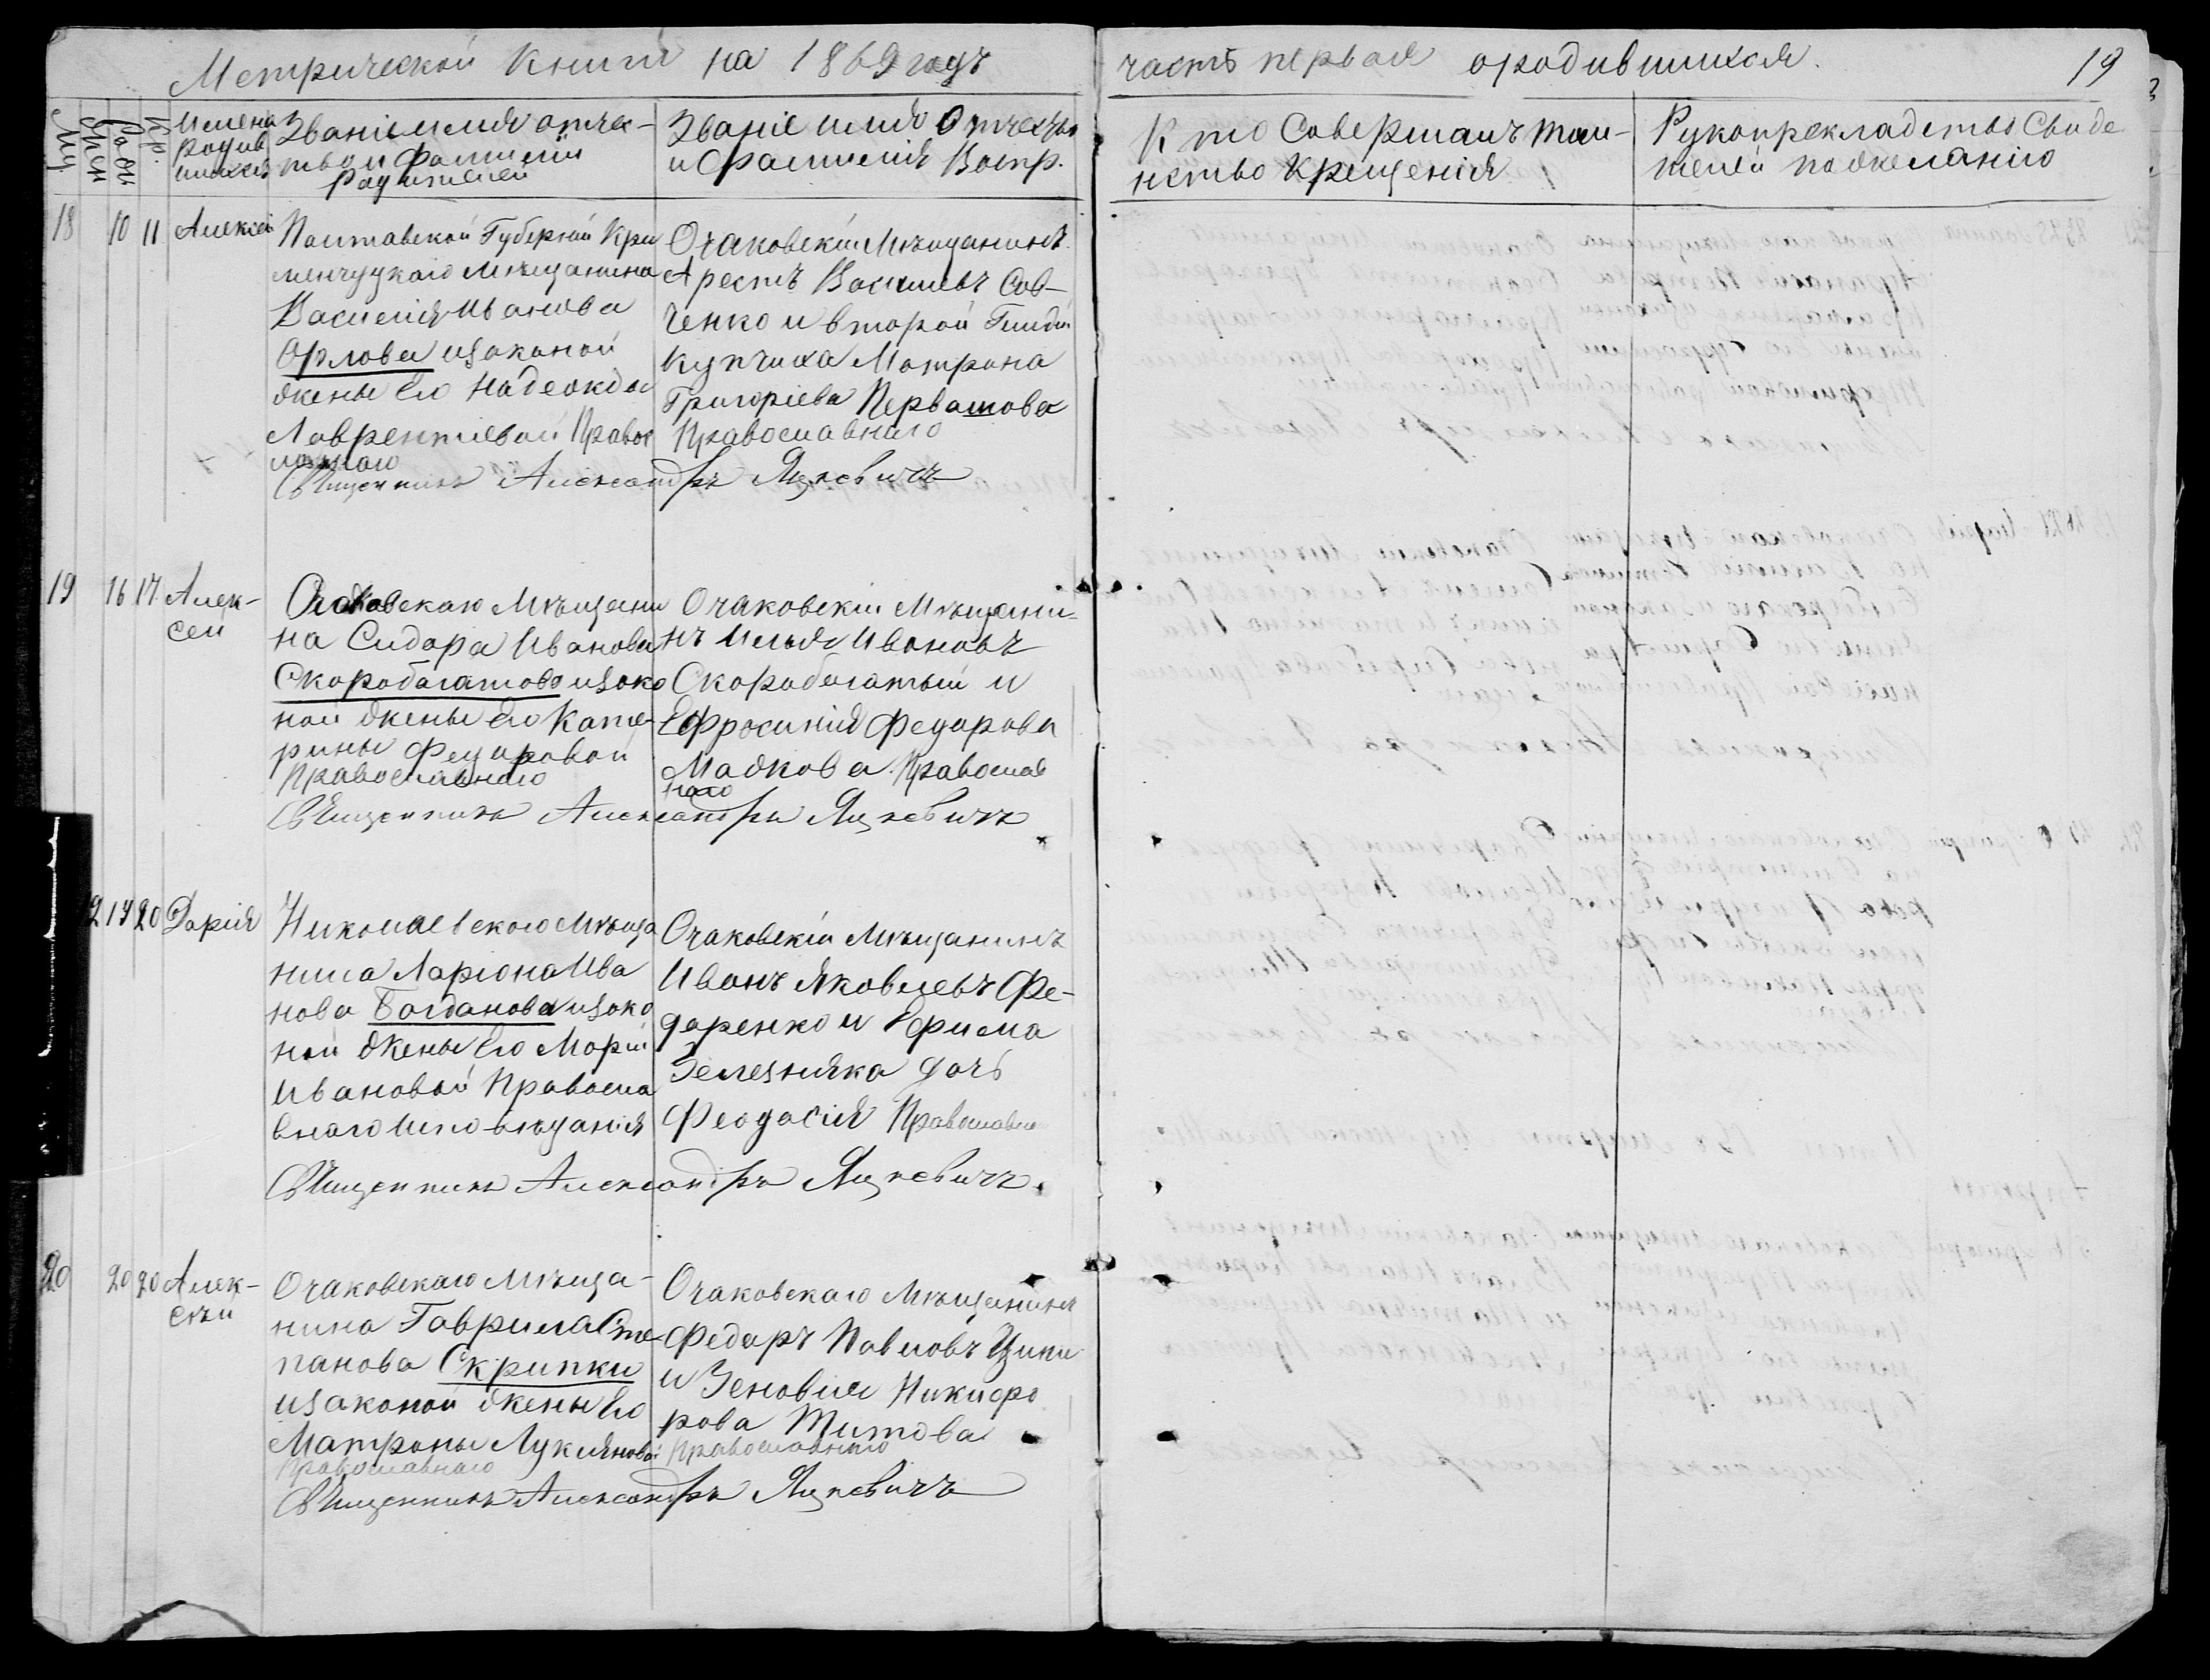 Метрической Книги на 1869 годъ
часть первая ородившихся.
19
Му.
Жен
Ро дн
Кр.
Имена
родив
шихся
Званіе имя отче-
тво и фамилии
Родителей
Званіе имя Отчество
и Фамилия Воспр.
Кто Совершалъ таи-
нство Крещенія
Рукопрекладство Свиде
телей по желанію
18
10
11
Алексей
Полтавской Губерний Кри
менчуцкаго мѣщанина
Василія Иванова
Орлова изаконой
жены Его Надежды
Лаврентиевой Правос
лавнаго
Очаковскій Мѣщанинъ
Арестъ Васильевъ Сав-
ченко и второй Гилди
купчиха Матрона
Григоріева Первашова
Православнаго
Священникъ Александръ Яцкевичъ
19
16
17
Алек-
сей
Очаковскаго Мѣщани
на Сидора Иванова
Скоробогатова изако
ной жены Его Кате-
рины Федаровой
Православнаго
Очаковскій Мѣщани-
нъ Илья Ивановъ
Скоробогатый и
Ефросиния Федарова
Мадкова Православ
наго
Священникъ Александръ Яцкевичъ
12
19
20
Дарія
Николаевского Мѣща
нина Ларіона Ива
нова Богданова изако
ной жены Его Маріи
Ивановой Правосла
внаго Исповѣданія
Очаковскій мѣщанинъ
Иванъ Яковлевъ Фе-
даренко и Ефима
Зелезняка дочь
Феодосія Православна
Священникъ Александръ Яцкевичъ.
20
20
20
Алек-
сѣй
Очаковскаго мѣща-
нина Гаврила Сте
панова Скрипки
изаконой жены Его
Матроны Лукияновой
Православнаго
Очаковскаго Мѣщанинъ
Федаръ Павловъ
и Зеновия Никифо
рова Титова
Православнаго
Священникъ Александръ Яцкевичъ